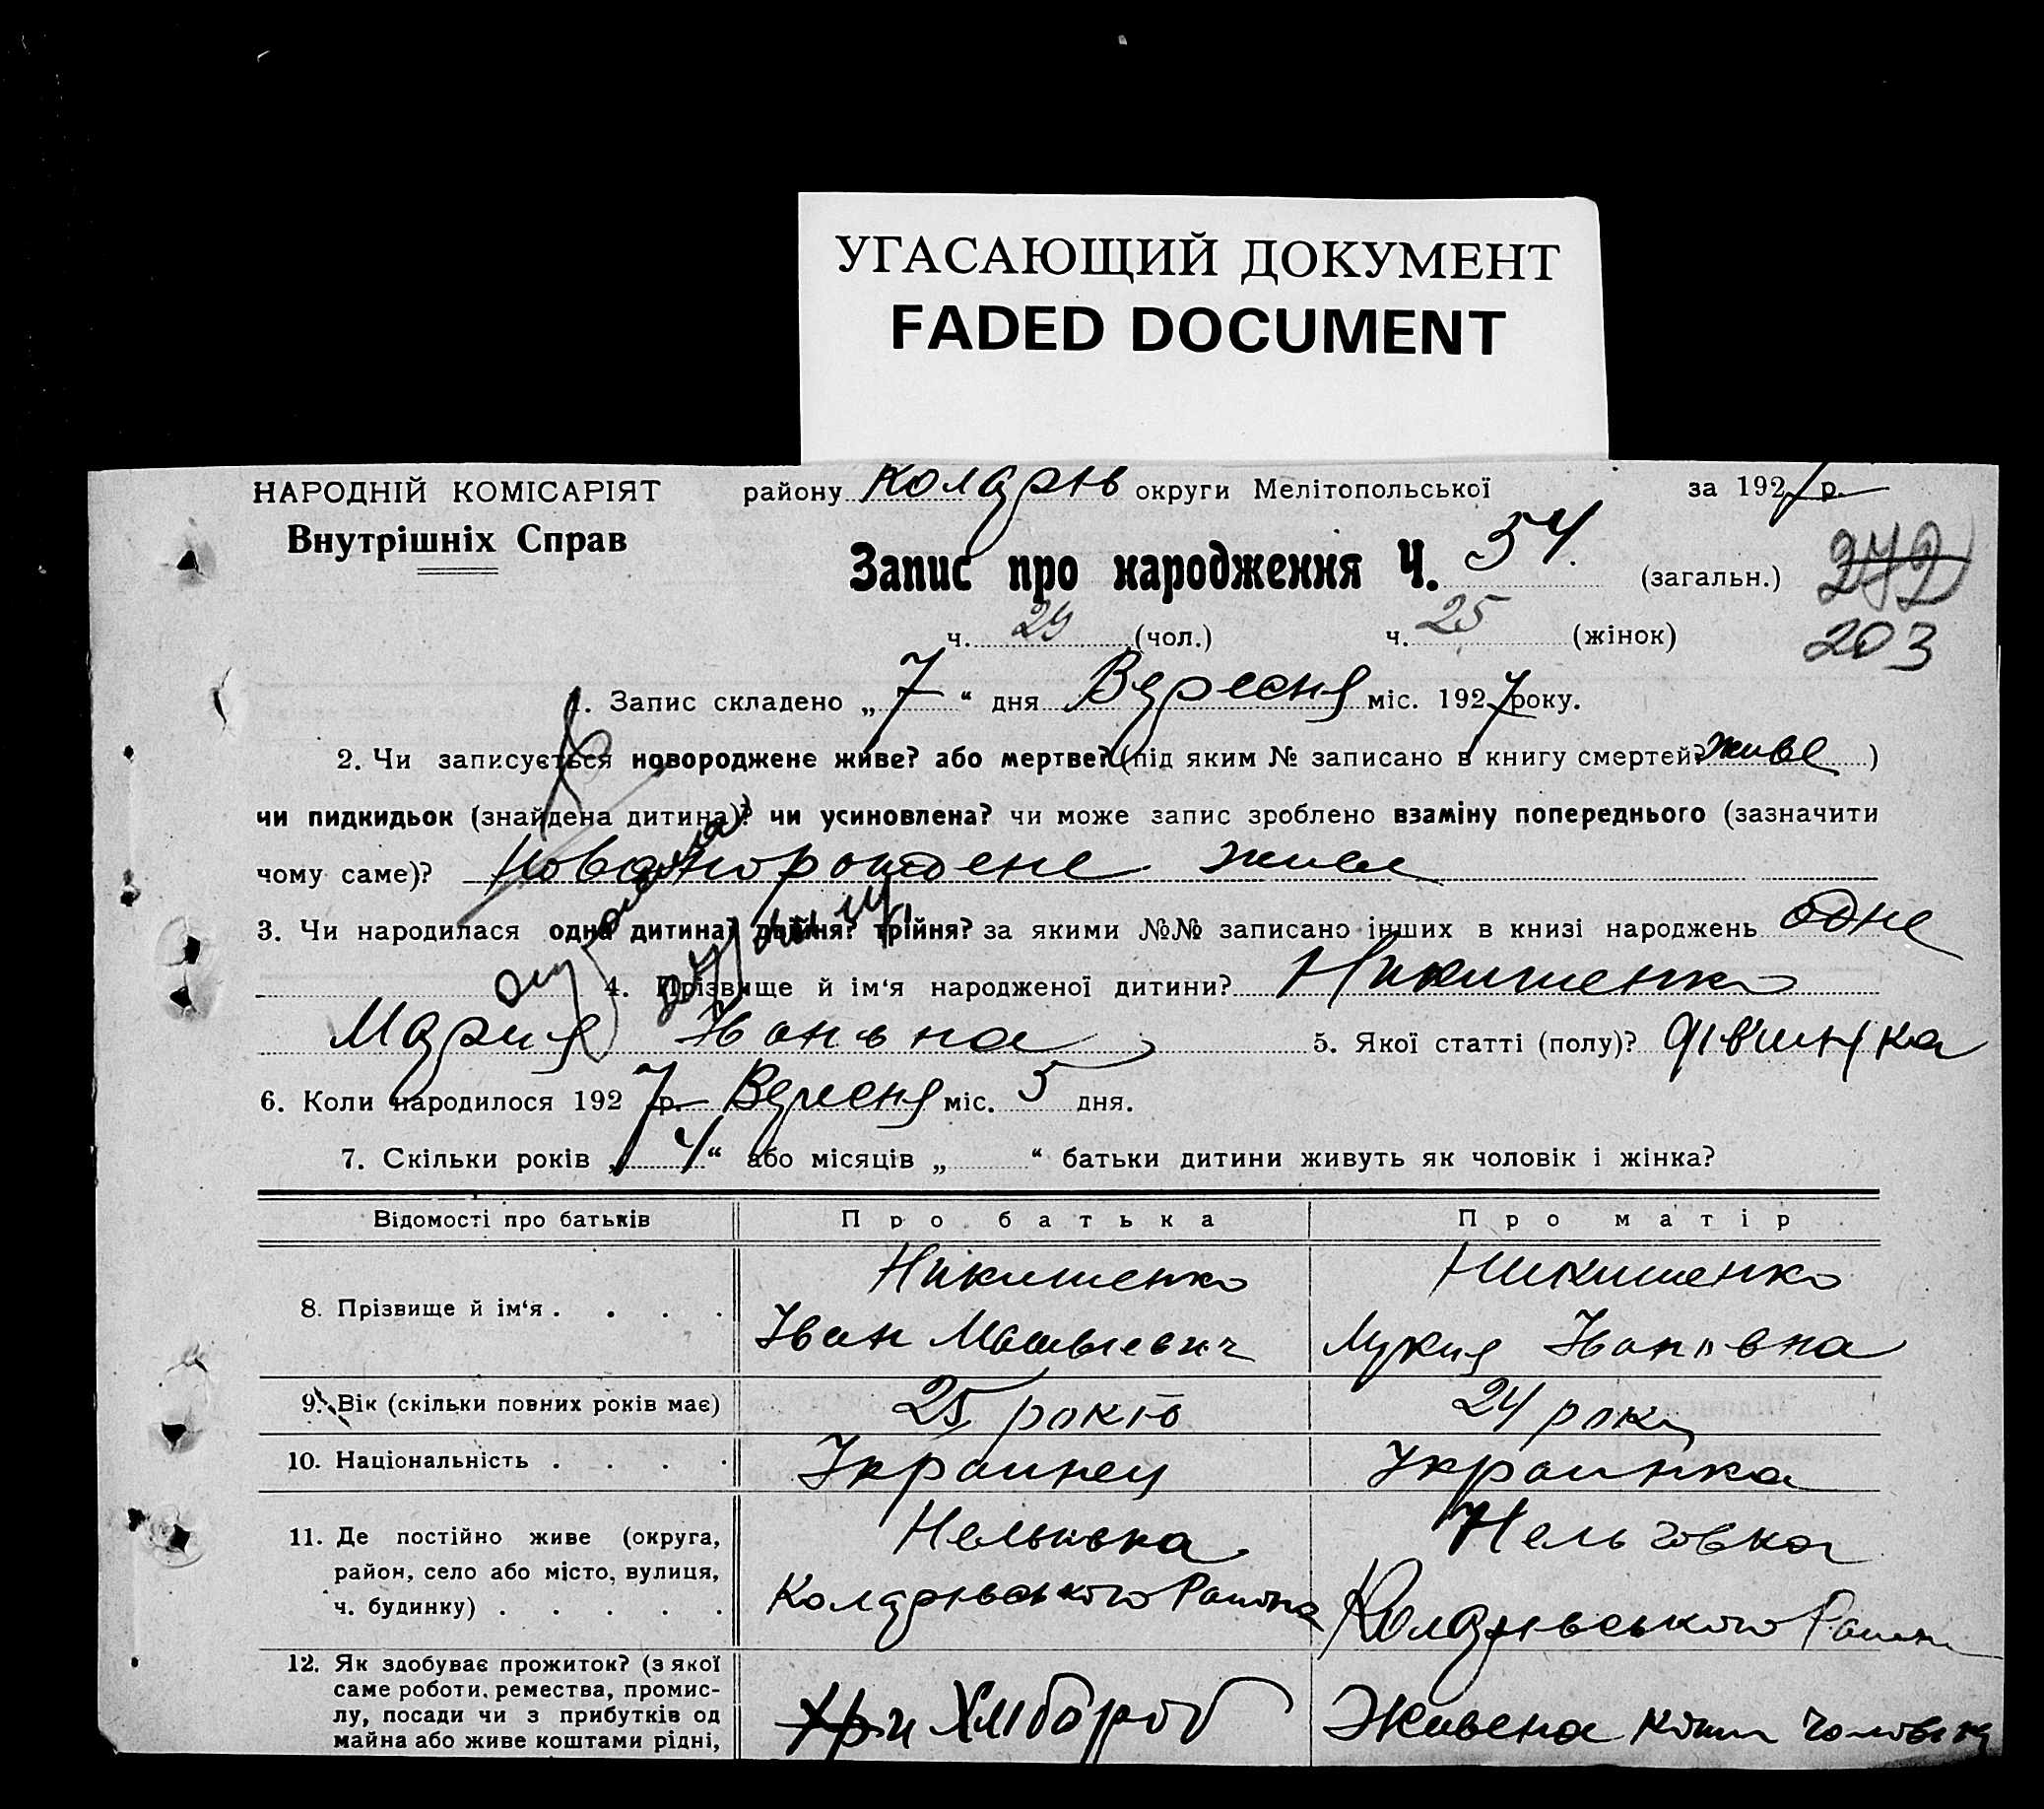 УГАСАЮЩИЙ ДОКУМЕНТ
FADED DOCUMENT
НАРОДНІЙ КОМІСАРІЯТ району округи Мелітопольської за 1927 р.
Внутрішніх Справ
Запис про народження Ч. 54. (загальн.) 272
203
ч. 29 (чол.) ч. 25 (жінок)
1. Запис складено „ 7 “ дня Вересня міс. 1927 року.
2. Чи записується новороджене живе? або мертве? (під яким № записано в книгу смертей? живе )
чи пидкидьок (знайдена дитина)? чи усиновлена? чи може запис зроблено взаміну попереднього (зазначити
чому саме)?
3. Чи народилася одна дитина? двійня? трійня? за якими №№ записано інших в книзі народжень одне
4. Прізвище й ім‘я народженої дитини? Никишенко
Мария Івановна 5. Якої статті (полу)? дівчинка
6. Коли народилося 1927 р. Вересня міс. 5 дня.
7. Скільки років „ 4 “ або місяців „ “ батьки дитини живуть як чоловік і жінка?
Відомості про батьків Про батька Про матір
8. Прізвище й ім‘я . . . . Никишенко Никишенко
Іван Матвіевич Лукия Івановна
9. Вік (скільки повних років має) 25 років 24 роки
10. Національність . . . . Украинец Украинка
11. Де постійно живе (округа,
район, село або місто, вулиця,
ч. будинку) . . . . .
12. Як здобуває прожиток? (з якої
саме роботи, ремества, промис-
лу, посади чи з прибутків од Хлібороб
майна або живе коштами рідні,